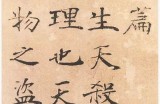 篇
生天殺
理也天
物之盜